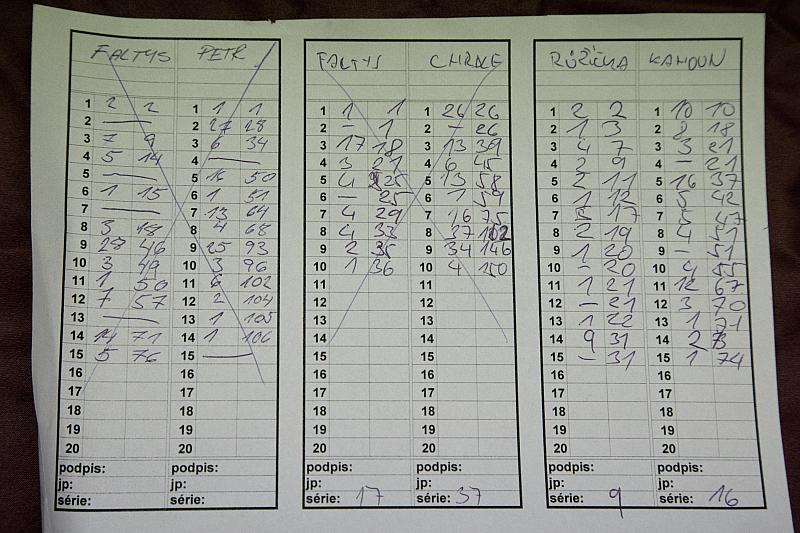 FALTYS PETR
1 2 2 1 1 1
2 — 2 27 28
3 7 9 3 6 34
4 5 14 4 —
5 — 5 16 50
6 1 15 6 1 51
7 — 7 13 64
8 3 18 8 4 68
9 28 46 9 25 93
10 3 49 10 3 96
11 1 50 11 6 102
12 7 57 12 2 104
13 — 13 1 105
14 14 71 14 1 106
15 5 76 15 —
16 16
17 17
18 18
19 19
20 20
podpis: podpis:
jp: jp:
série: série:
FALTYS
1 1 1 1 26 26
2 – 1 2 – 26
3 17 18 3 13 39
4 3 21 4 6 45
5 4 25 5 13 58
6 – 25 6 1 59
7 4 29 7 16 75
8 4 33 8 37 102
9 2 35 9 34 146
10 1 36 10 4 150
11 11
12 12
13 13
14 14
15 15
16 16
17 17
18 18
19 19
20 20
podpis: podpis:
jp: jp:
série: 17 série: 37
RŮŽIČKA KAHOUN
1 2 2 1 10 10
2 1 3 2 8 18
3 4 7 3 3 21
4 2 9 4 – 21
5 2 11 5 16 37
6 1 12 6 5 42
7 5 17 7 5 47
8 2 19 8 4 51
9 1 20 9 – 51
10 – 20 10 4 55
11 1 21 11 12 67
12 – 21 12 3 70
13 1 22 13 1 71
14 9 31 14 2 73
15 – 31 15 1 74
16 16
17 17
18 18
19 19
20 20
podpis: podpis:
jp: jp:
série: 9 série: 16